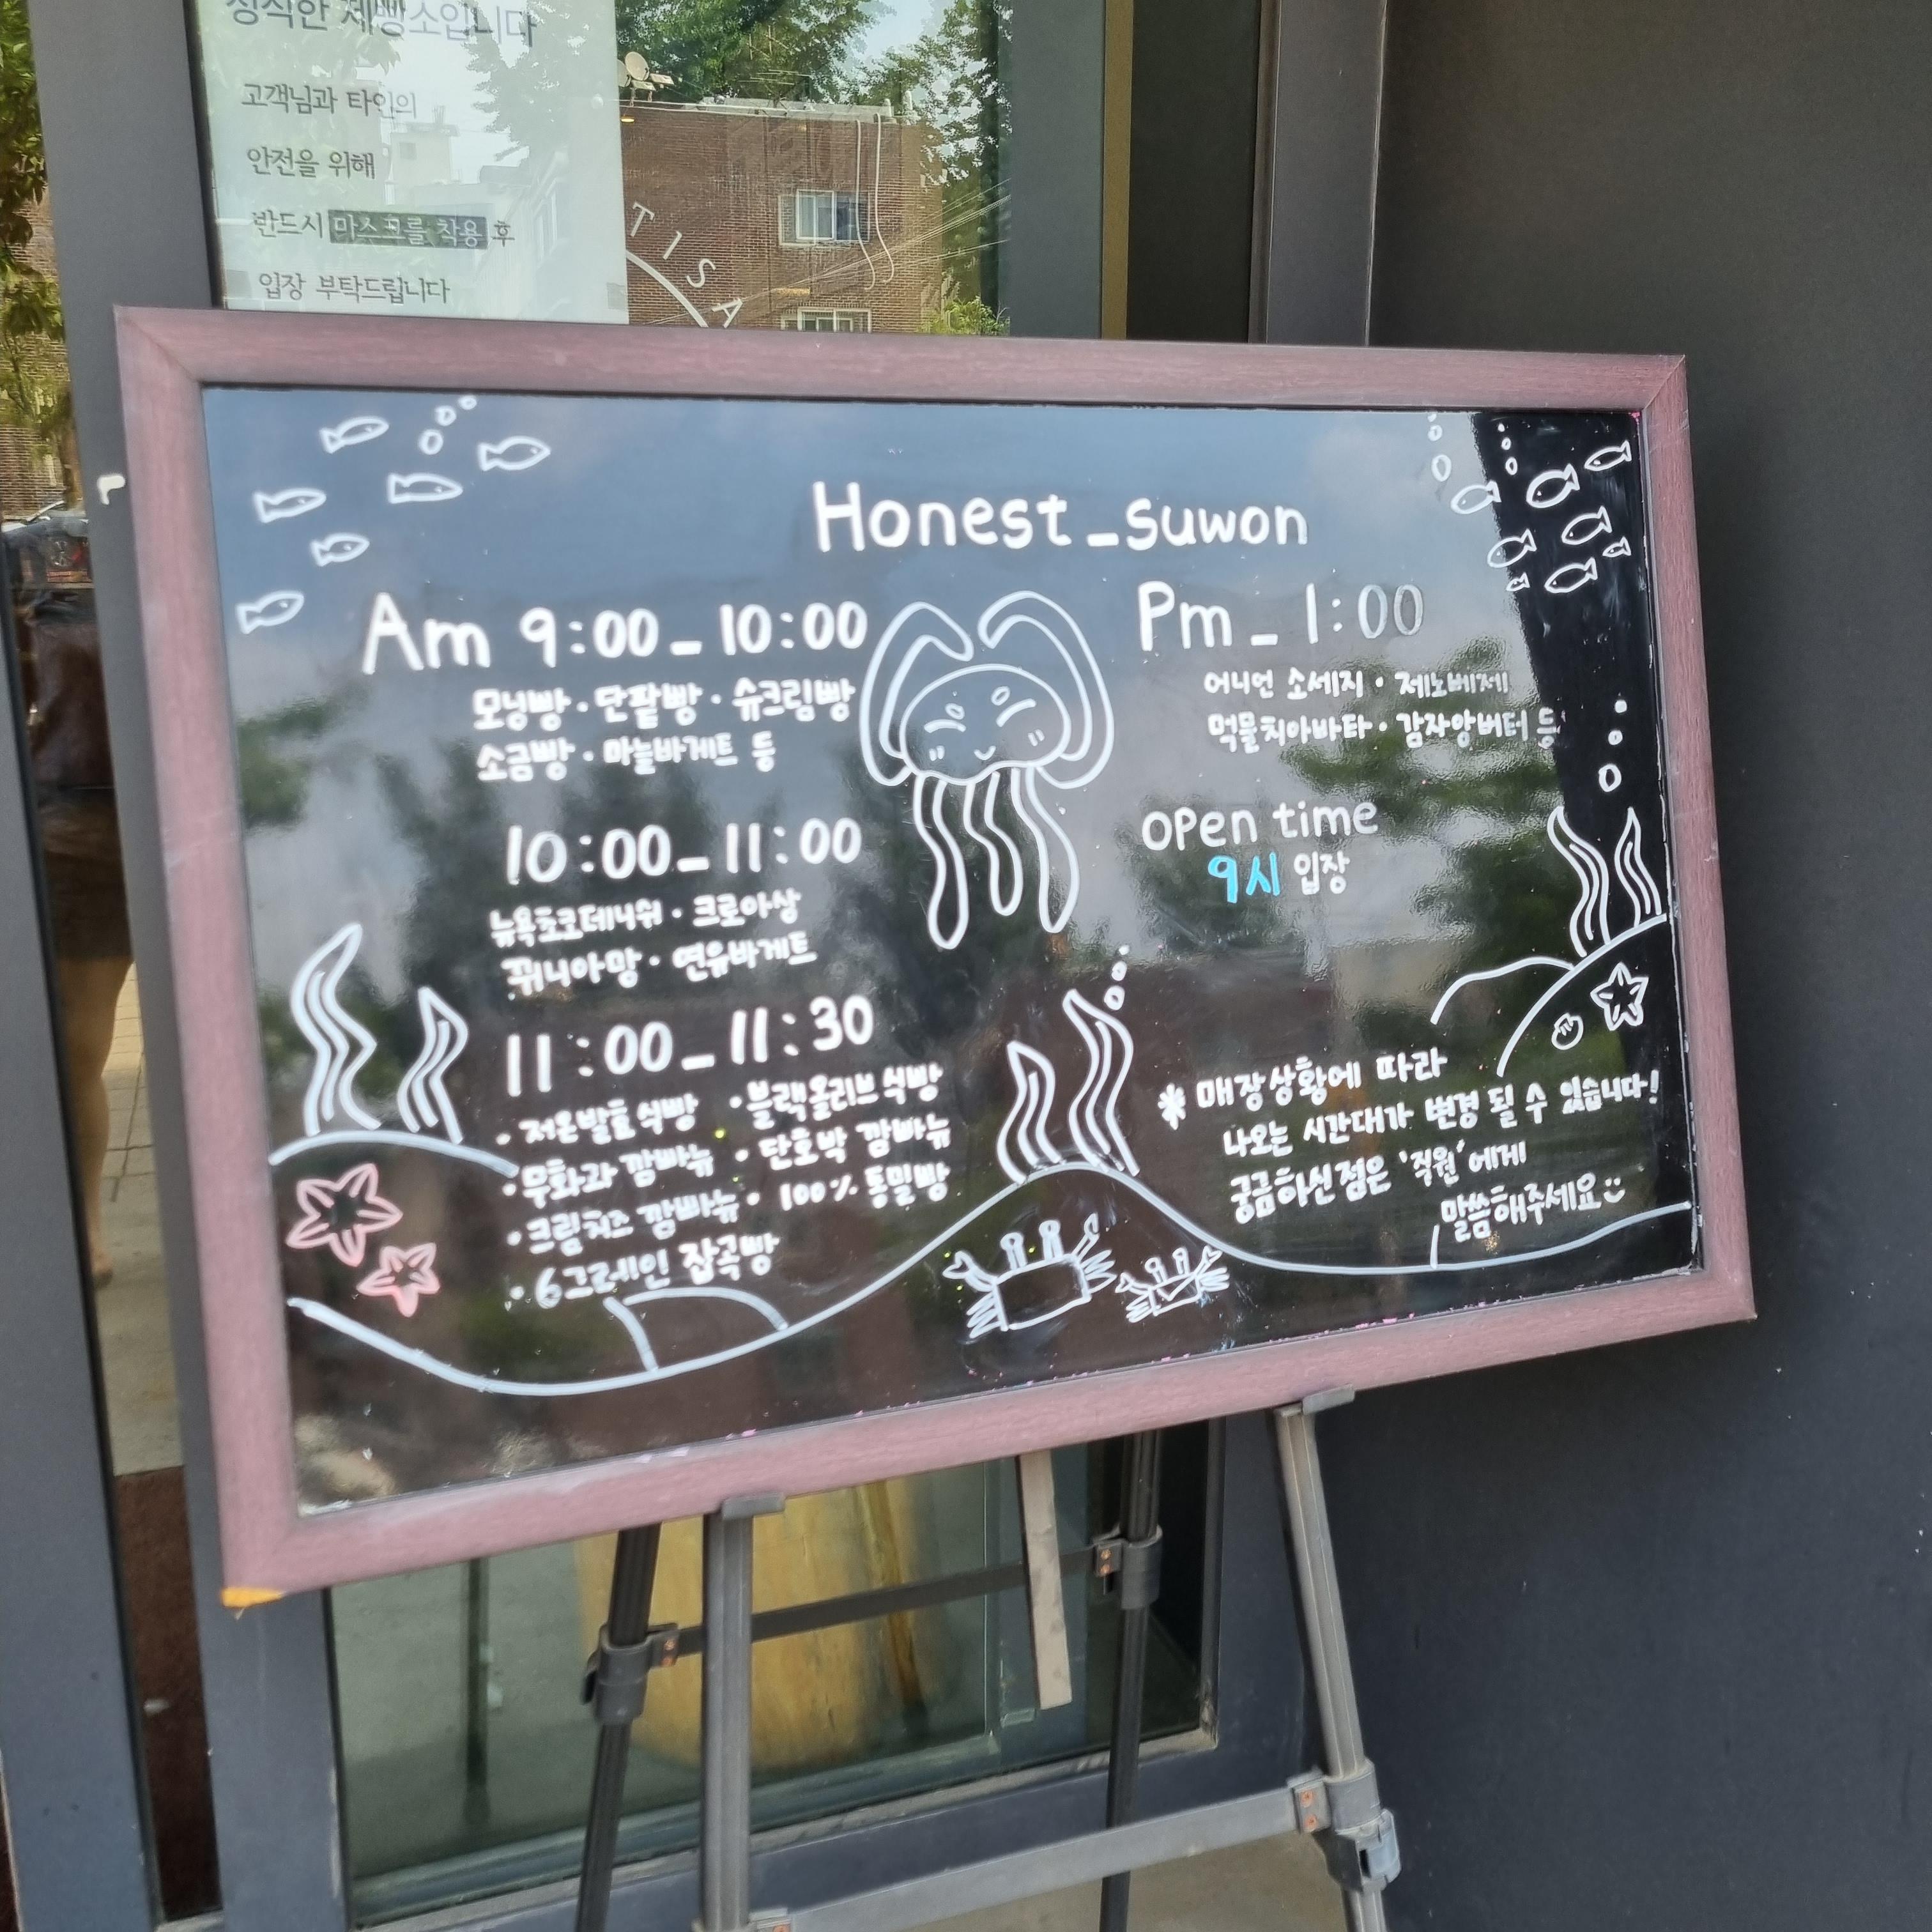 정직한 제빵소입니다
고객님과 타인의
안전을 위해
반드시 마스크를 착용 후
입장 부탁드립니다
TISA
Honest_suwon
Am 9:00_10:00
모닝빵·단팥빵·슈크림빵
소금빵·마늘바게트 등
10:00_11:00
뉴욕초코데니쉬·크로아상
퀴니아망·연유바게트
11:00_11:30
·저온발효식빵 ·블랙올리브식빵
·무화과 깜빠뉴 ·단호박 깜빠뉴
·크림치즈 깜빠뉴·100% 통밀빵
·6그레인 잡곡빵
Pm_1:00
어니언 소세지·제노베제
먹물치아바타·감자앙버터 등
open time
9시 입장
* 매장상황에 따라
나오는 시간대가 변경 될 수 있습니다!
궁금하신점은 '직원'에게
말씀해주세요